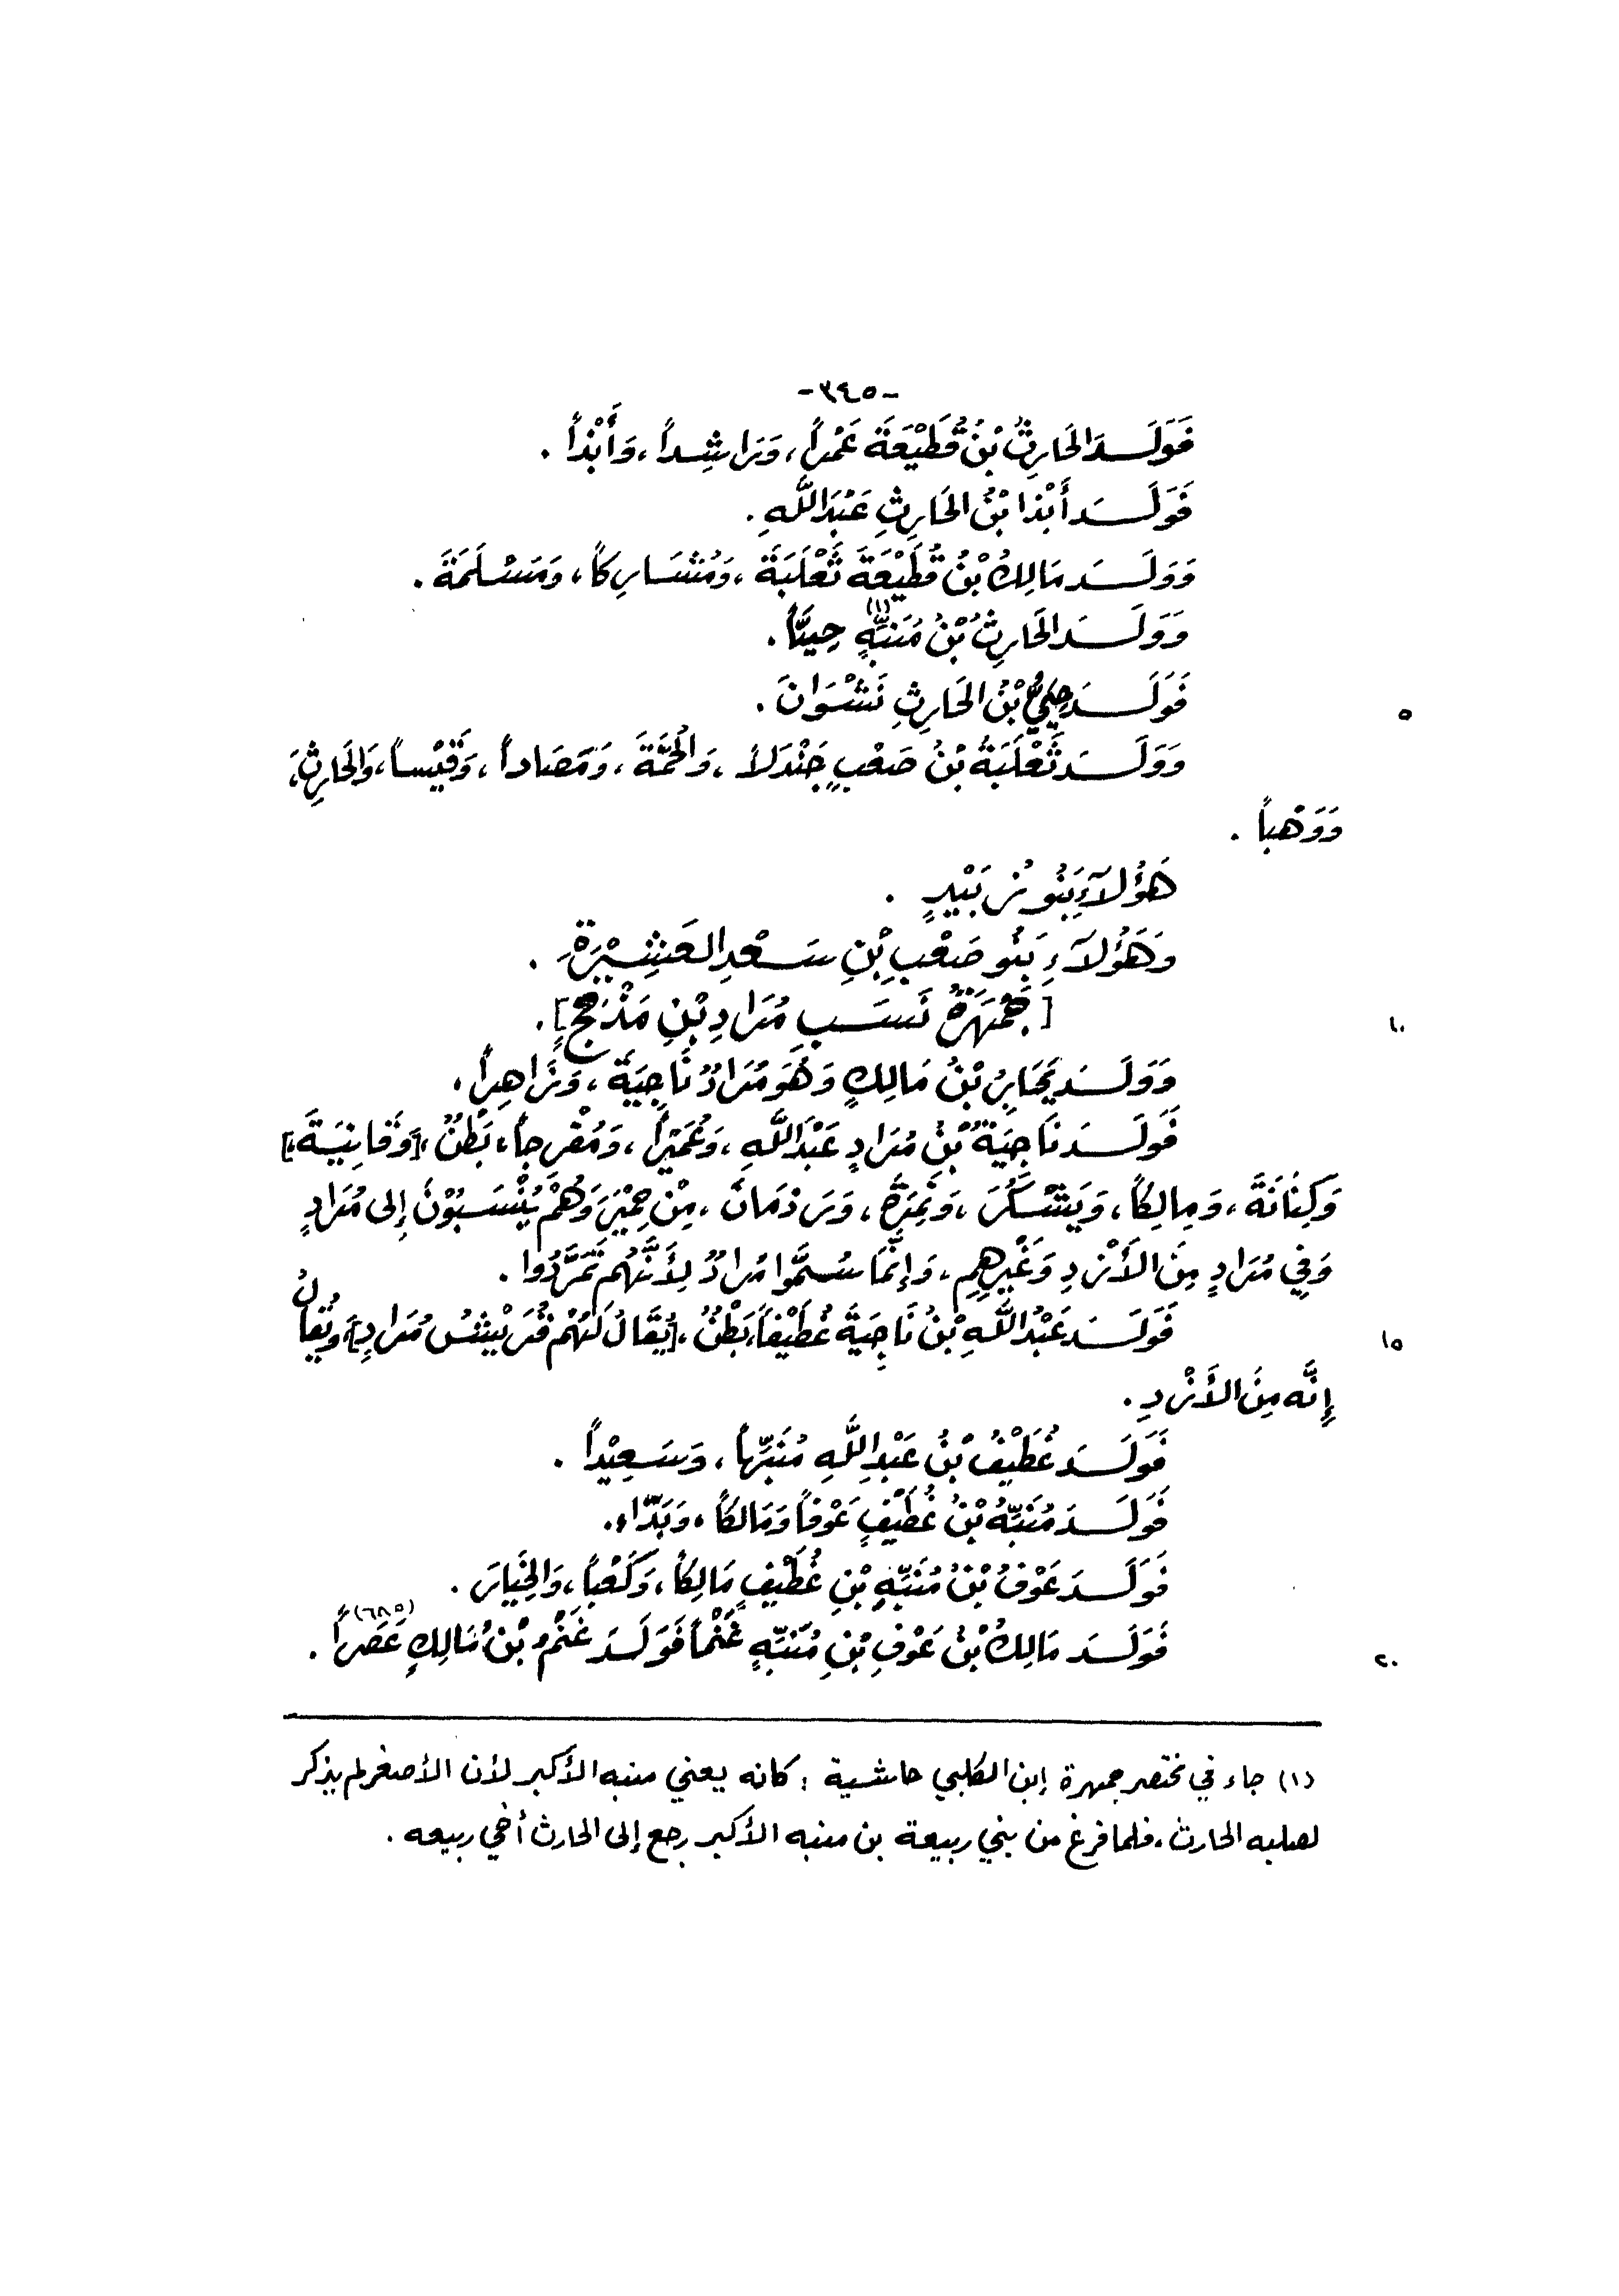 -٣٤٥-
فَوَلَـدَ الحَارِثُ بْنُ قُطَيْعَةَ عَمْراً، وَرَاشِداً، وَأَبْذاً.
فَوَلَـدَ أَبْذا بْنُ الحَارِثِ عَبْدَاللَّهِ.
وَوَلَـدَ مَالِكُ بْنُ قُطَيْعَةَ ثَعْلَبَةَ، وَمُشَارِكاً، وَمَسْلَمَةَ.
وَوَلَـدَ الحَارِثُ بْنُ مُنَبِّهٍ(١) حِيَيّاً.
٥ فَوَلَـدَ حِيَيُّ بْنُ الحَارِثِ نَشْوَانَ.
وَوَلَـدَ ثَعْلَبَةُ بْنُ صَعْبٍ جَنْدَلاً، وَالحُمَّةَ، وَمَصَاداً، وَقَيْساً، وَالحَارِثَ،
وَوَهْباً.
هَؤُلآءِ بَنُو زُبَيْدٍ.
وَهَؤُلآءِ بَنُو صَعْبِ بْنِ سَـعْدِ العَشِـيْرَةِ.
١٠ [جَمْهَرَةُ نَسَـبِ مُرَادِ بْنِ مَذْحِجٍ].
وَوَلَـدَ يَحَابِرُ بْنُ مَالِكٍ وَهُوَ مُرَادٌ نَاجِيَةَ، وَزَاهِراً،
فَوَلَـدَ نَاجِيَةُ بْنُ مُرَادٍ عَبْدَاللَّهِ، وَعُمَيْراً، وَمُفْرِجاً، بَطْنٌ، [وَقَانِيَـةَ،]
وَكِنَانَةَ، وَمَالِكاً، وَيَشْكُرَ، وَنَمِرَةَ، وَرَدْمَانَ، مِنْ حِمْيَرَ وَهُمْ يُنْسَبُوْنَ إِلى مُرَادٍ
وَفِي مُرَادٍ مِنَ الأَزْدِ وَغَيْرِهِم، وَإِنَّمَا سُـمَّوا مُرَادٌ لِأَنَّهُم تَمَرَّدُوا.
١٥ فَوَلَـدَ عَبْدُ اللَّهِ بْنُ نَاجِيَةَ غُطَيْفاً، بَطْنٌ، [يُقَالُ لَهُمْ قُرَيْشُ مُرَادٍ]، وَيُقالُ
إِنَّه مِنَ الأَزْدِ.
فَوَلَـدَ غُطَيْفُ بْنُ عَبْدِ اللَّهِ مُنَبِّهاً، وَسَـعِيْداً.
فَوَلَـدَ مُنَبِّهُ بْنُ غُطَيْفٍ عَوْفاً وَمَالكاً، وَبَدَّاء.
فَوَلَـدَ عَوْفُ بْنُ مُنَبِّهِ بْنِ غُطَيْفٍ مَالِكاً، وَكَعْباً، وَالخِيَارَ.
٢٠ فَوَلَـدَ مَالِكُ بْنُ عَوْفِ بْنِ مُنَبِّهٍ غَنْماً فَوَلَـدَ غَنْمُ بْنُ مَالِكٍ عَصَراً(٦٨٥).
(١) جاء في مختصر جمهرة إبن الكلبي حاشية: كانه يعني منبه الأكبر لأن الأصغر لم يذكر
لصلبه الحارث، فلما فرغ من بني ربيعة بن منبه الأكبر رجع إلى الحارث أخي ربيعه.